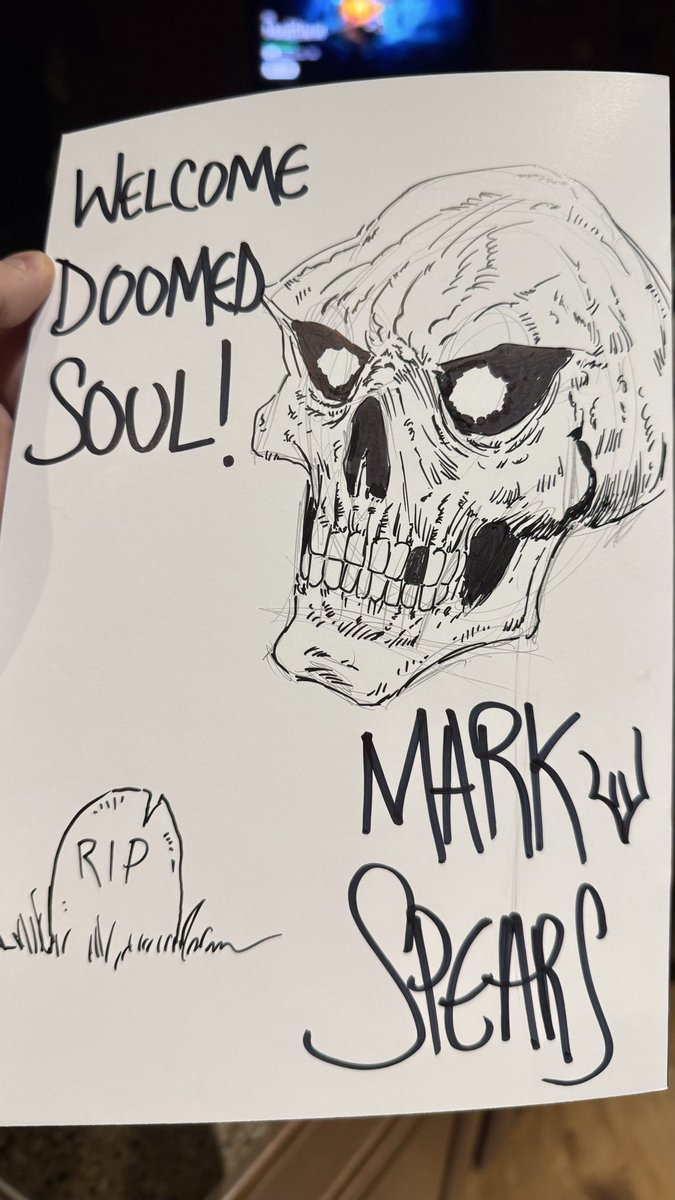 WELCOME
DOOMED
SOUL!
RIP
MARK
SPEARS